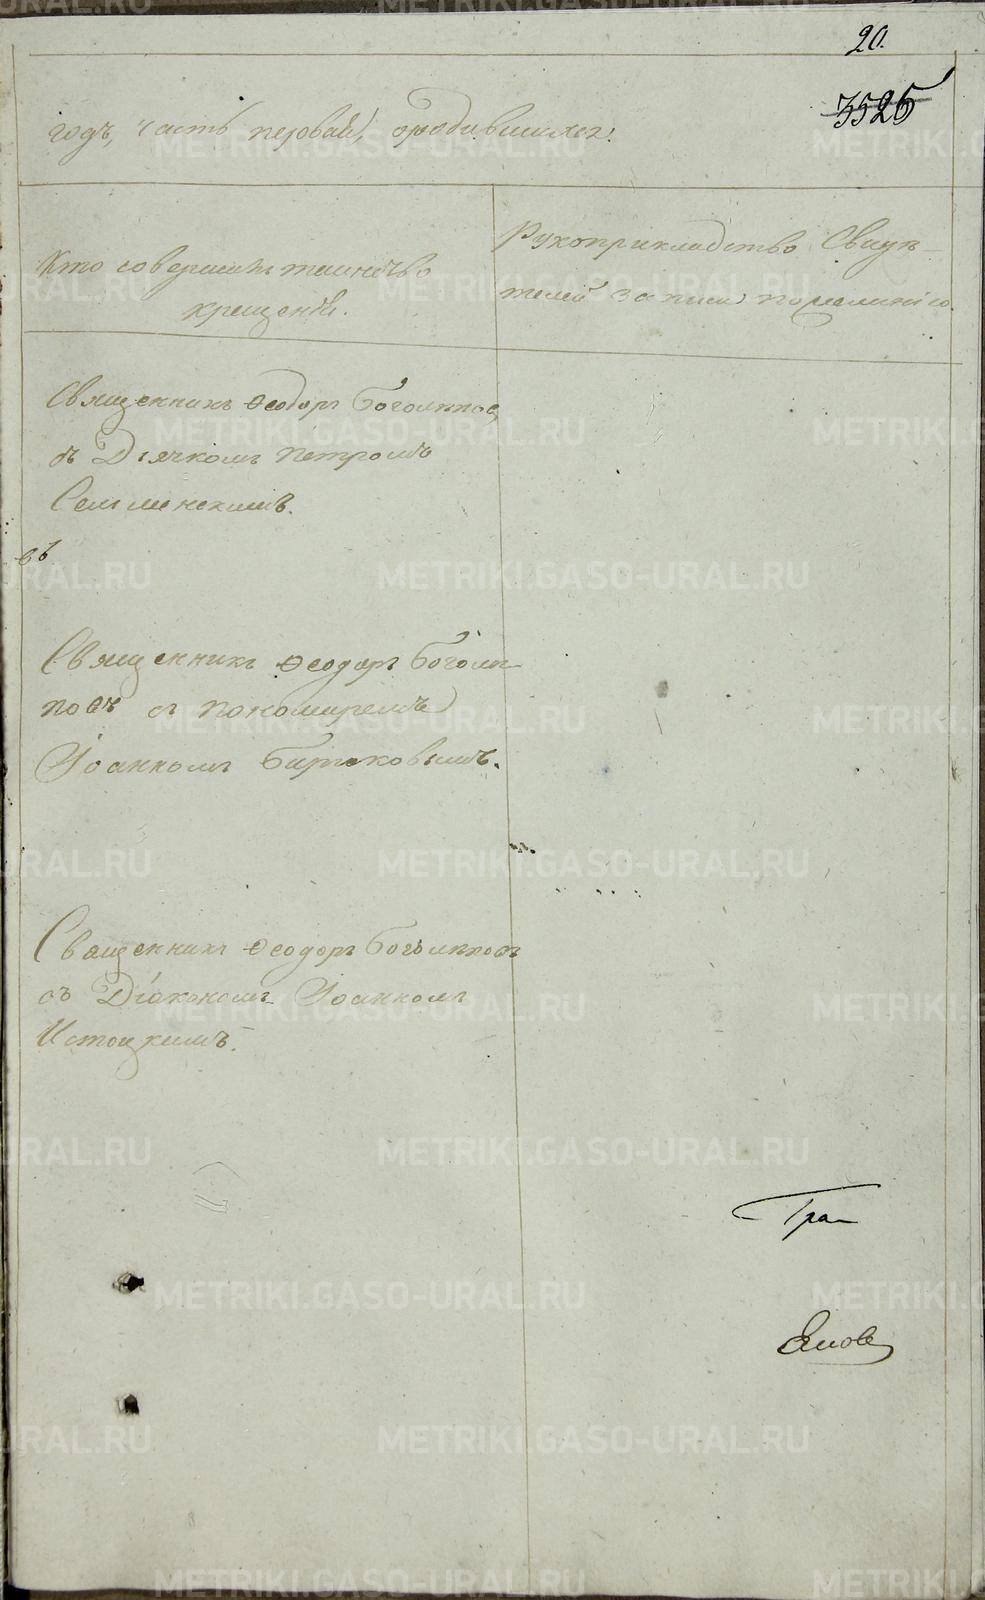 20.
3525
годъ, часть первая, ородившихся:
Кто совершалъ таинство
крещенія.
Рукоприкладство Свидѣ-
телей записи по желанію.
Священникъ Ѳеодоръ Боголѣпов
съ Дьячкомъ Петромъ
въ
Священникъ Ѳеодоръ Боголѣ-
повъ съ Пономаремъ
Іоанномъ
Священникъ Ѳеодоръ Боголѣповъ
съ Діакономъ Іоанномъ
Истоцкимъ.
Гра-
METRIKI.GASO-URAL.RU